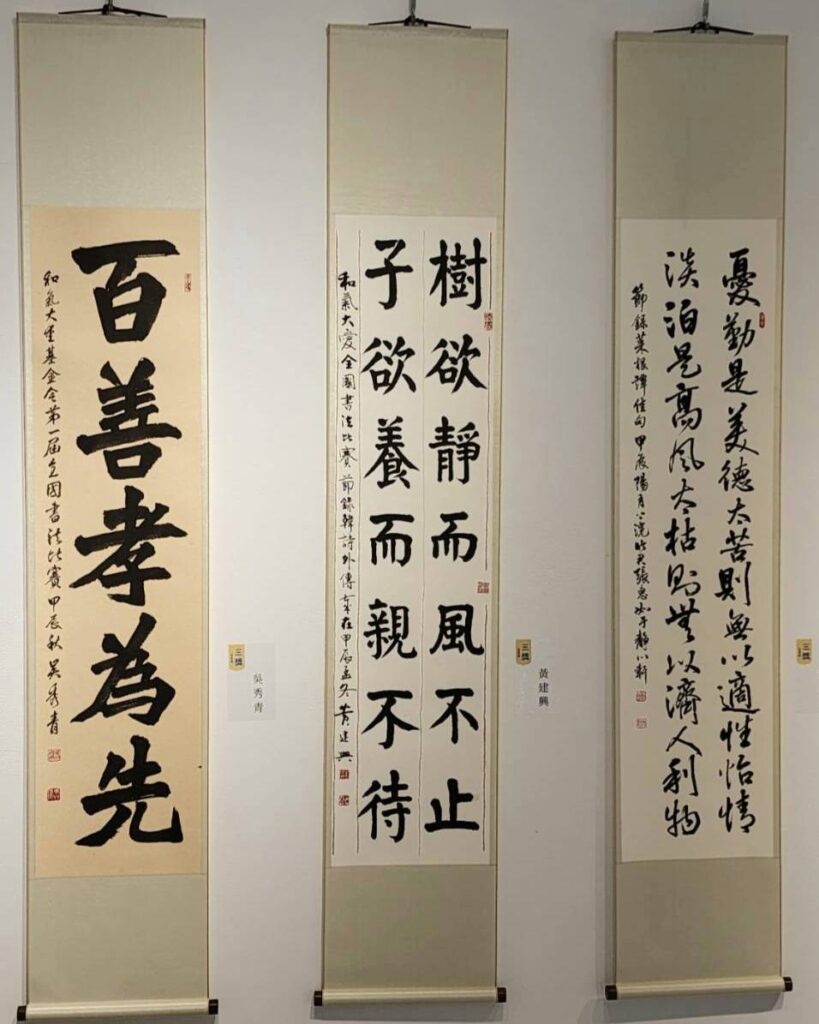 百善孝為先
和氣大愛基金會第一屆全國書法比賽 甲辰秋 吳秀青
三獎
吳秀青
樹欲靜而風不止
子欲養而親不待
和氣大愛全國書法比賽 節錄韓詩外傳 歲在甲辰孟冬 黃建興
三獎
黃建興
憂勤是美德太苦則無以適性怡情
淡泊是高風太枯則無以濟人利物
節錄菜根譚佳句 甲辰陽月
三獎